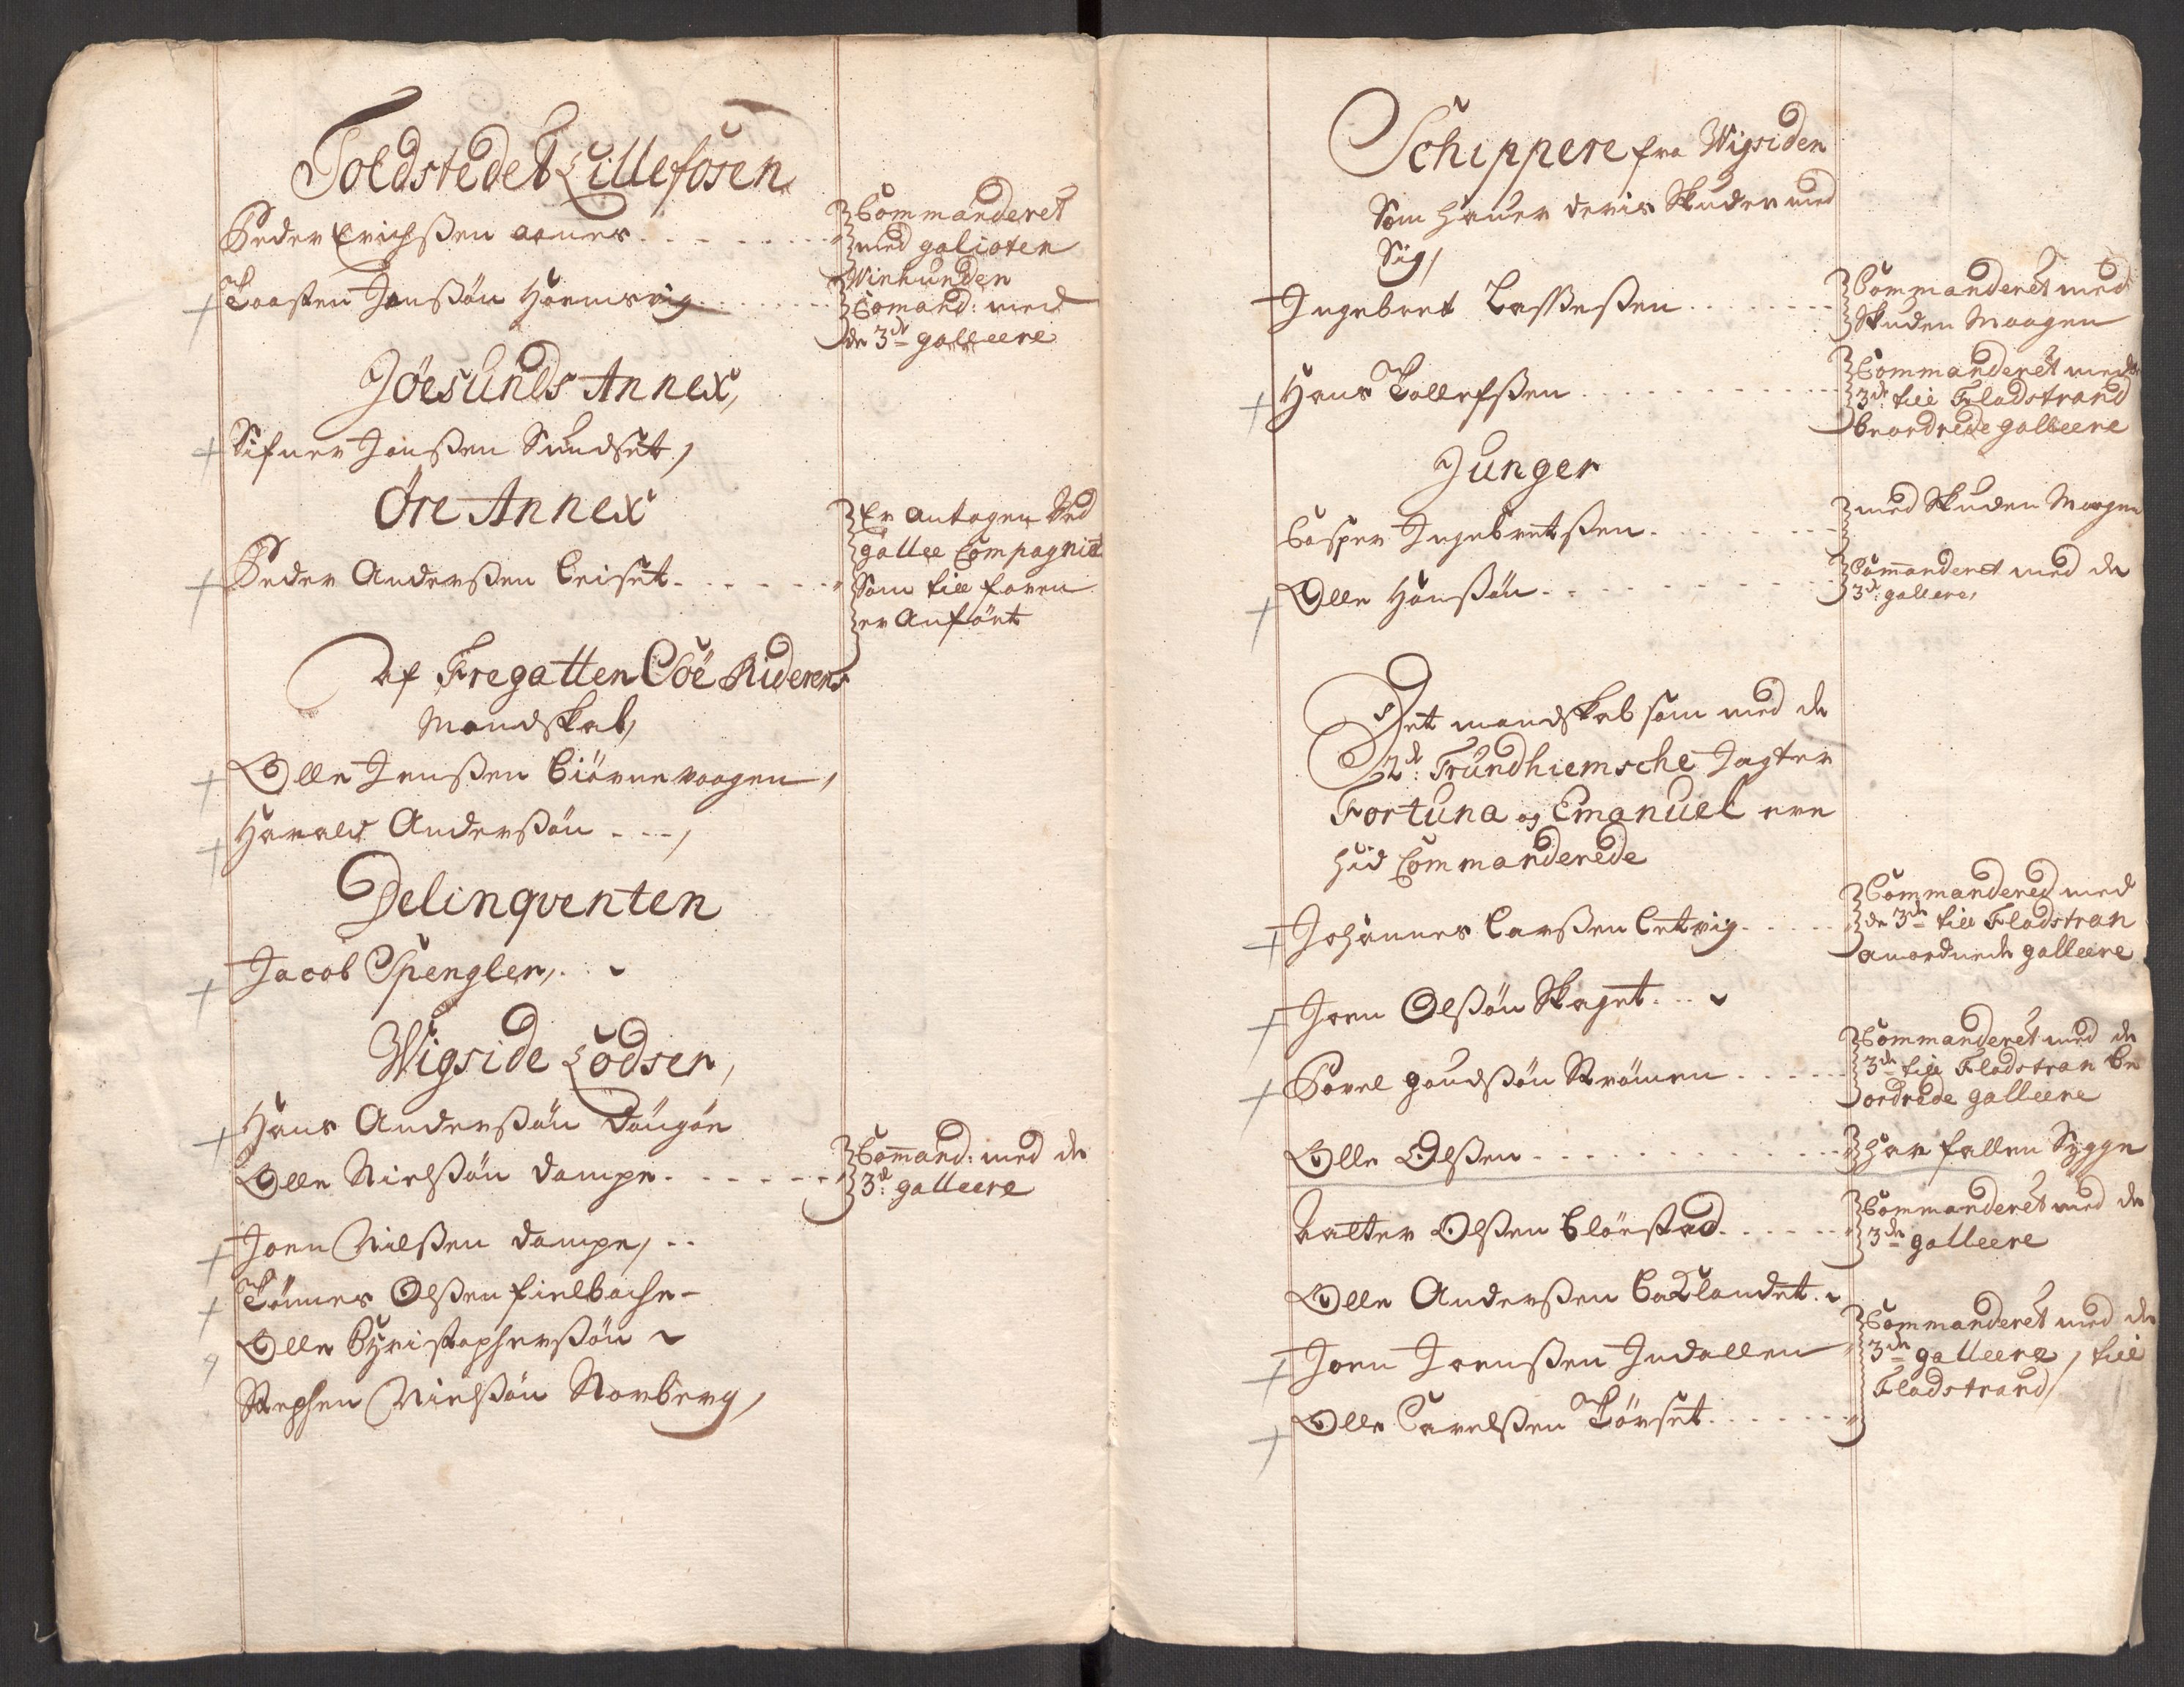 Toldstedet Lillefosen
Peder Erichßen aanes
Commanderet
med galioten
Winhunden
+ Taasten Jonßøn Hormsvig
Comand: med
de 3de galleere
Jöesunds Annex,
+ Sifuer Jonßen Sundset,
Öre Annex
+ Peder Anderßen Leiset
Er antagen Ved
gallee Compagniet
Som till foren
er Anfört
Af Fregatten Löe Riderens
Mandskab,
+ Olle Jenßen Biörnevaagen,
+ Harald Anderßøn
Delinqventen
+ Jacob Spengler,
Wigside Lodser,
+ Hans Anderßøn
Olle Nielßøn dampe
Command: med de
3de galleere
+ Joen Nielßen dampe,
+ Tønnes Olßen
Olle Christopherßøn
Stephen Nielßøn Norberg,
Schippere fra Wigsiden
Som hauer deris Skuder med
Sig,
Ingebret Laßeßen
Commanderet med
Skuden Maagen
+ Hans Tollefßen
Commanderet med de
3de till Fladstrand
beordrede galleere
Junger
Casper Ingebretßen
med Skuden Maagen
+ Olle Hanßøn
Commanderet med de
3de gallere,
Det mandskab som med de
2de: Trundhiemsche Jagter
Fortuna og Emanuel ere
hid Commanderede
+ Johannes Larßen Letvig
Commandered med
de 3de till Fladstran
anordnede galleere
+ Joen Olßøn Skaget
+ Povel gaudßøn Strömen
Commanderet med de
3de till Fladstran be
ordrede galleere
Olle Olßen
har fallen Sygge
Valter Olßen Clöestad
Commanderet med de
3de galleere
Olle Anderßen Baklandet
+ Joen Joenßen Indallen
Commanderet med de
3de galleere, till
Fladstrand,
+ Olle Pavelßen Törset